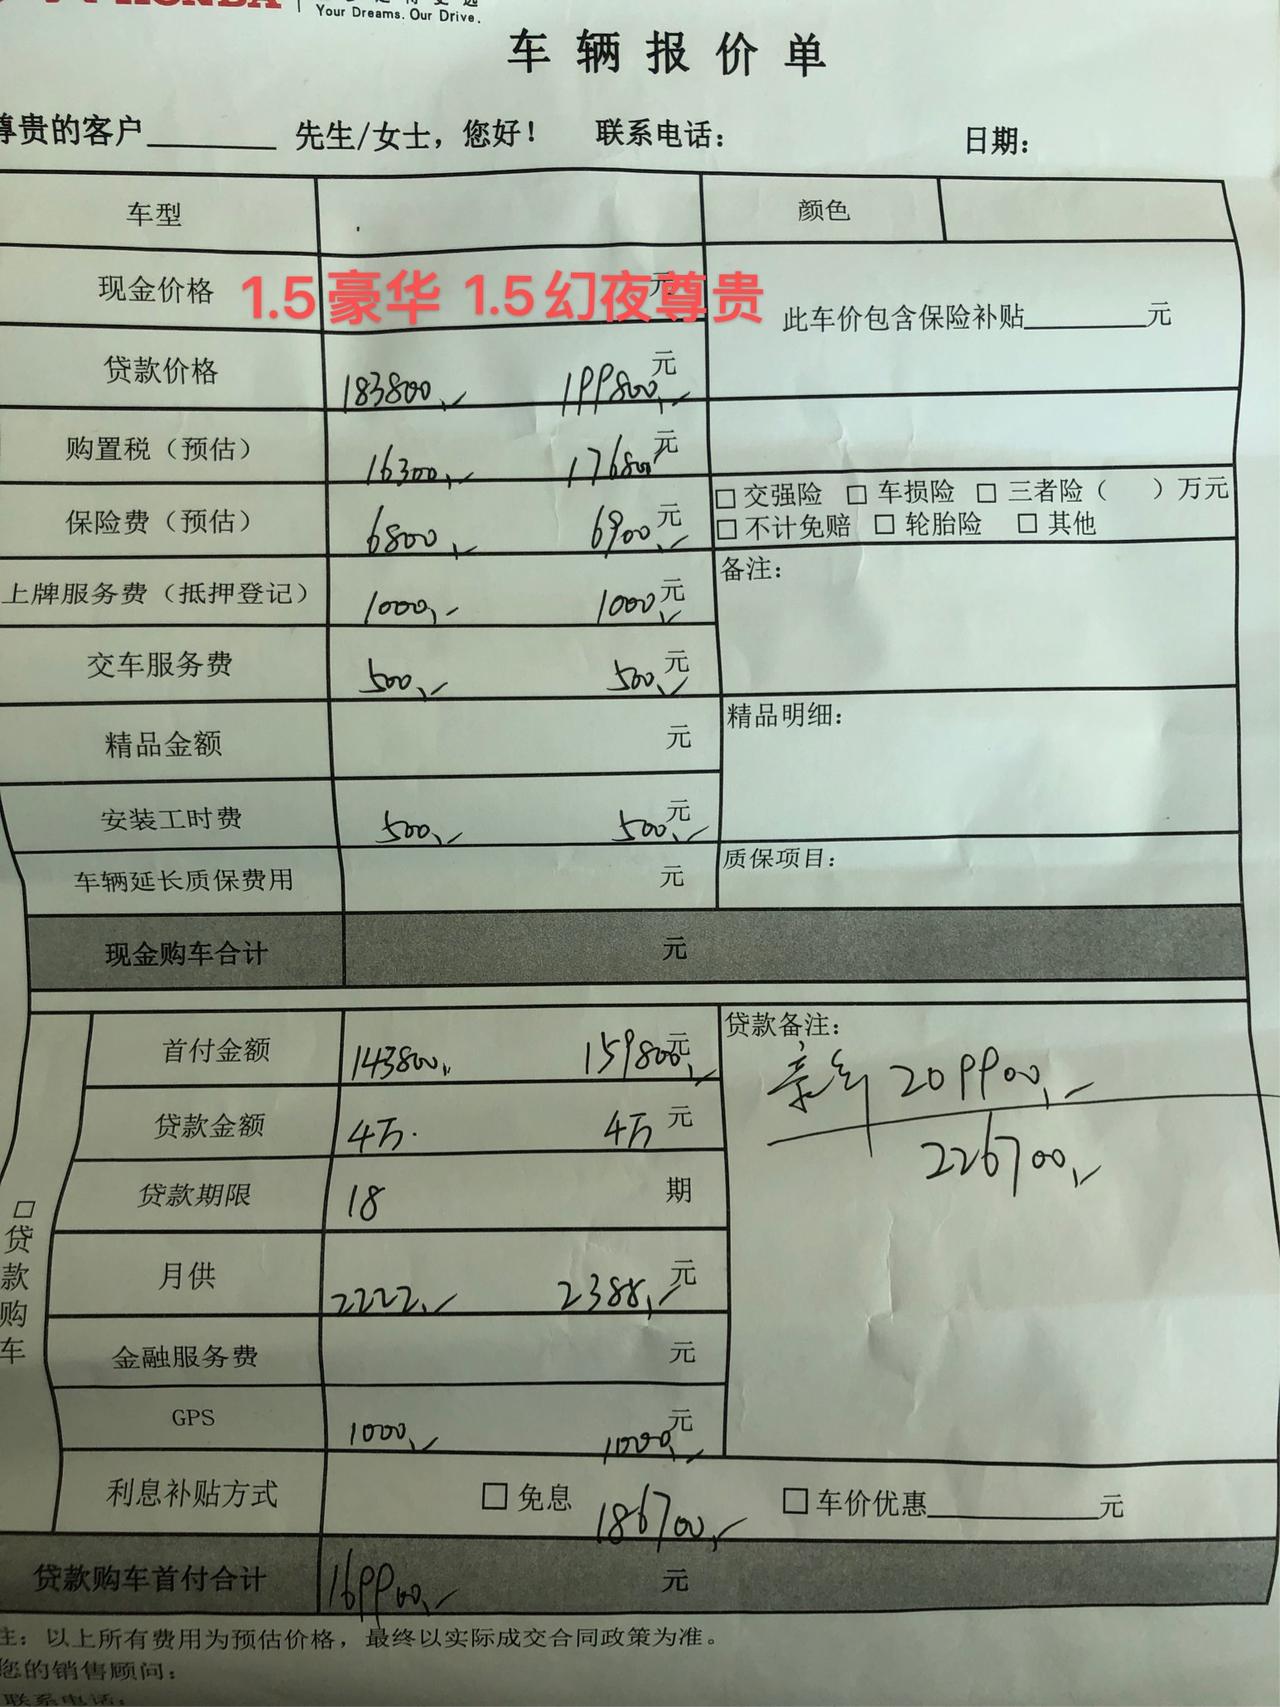 HONDA
Your Dreams. Our Drive.
车辆报价单
尊贵的客户________ 先生/女士，您好！ 联系电话： 日期：
车型 颜色
现金价格 元 此车价包含保险补贴________元
1.5豪华 1.5幻夜尊贵
贷款价格 183800 199800 元
购置税（预估） 16300 176800 元
保险费（预估） 6800 6900 元 □交强险 □车损险 □三者险（ ）万元
□不计免赔 □轮胎险 □其他
上牌服务费（抵押登记） 1000 1000 元 备注：
交车服务费 500 500 元
精品金额 元 精品明细：
安装工时费 500 500 元
车辆延长质保费用 元 质保项目：
现金购车合计 元
□贷款购车
首付金额 143800 159800 元 贷款备注：
209900
226700
贷款金额 4万 4万 元
贷款期限 18 期
月供 2222 2388 元
金融服务费 元
GPS 1000 1000 元
利息补贴方式 □免息 □车价优惠________元
186700
贷款购车首付合计 169900 元
注：以上所有费用为预估价格，最终以实际成交合同政策为准。
您的销售顾问：
联系电话：